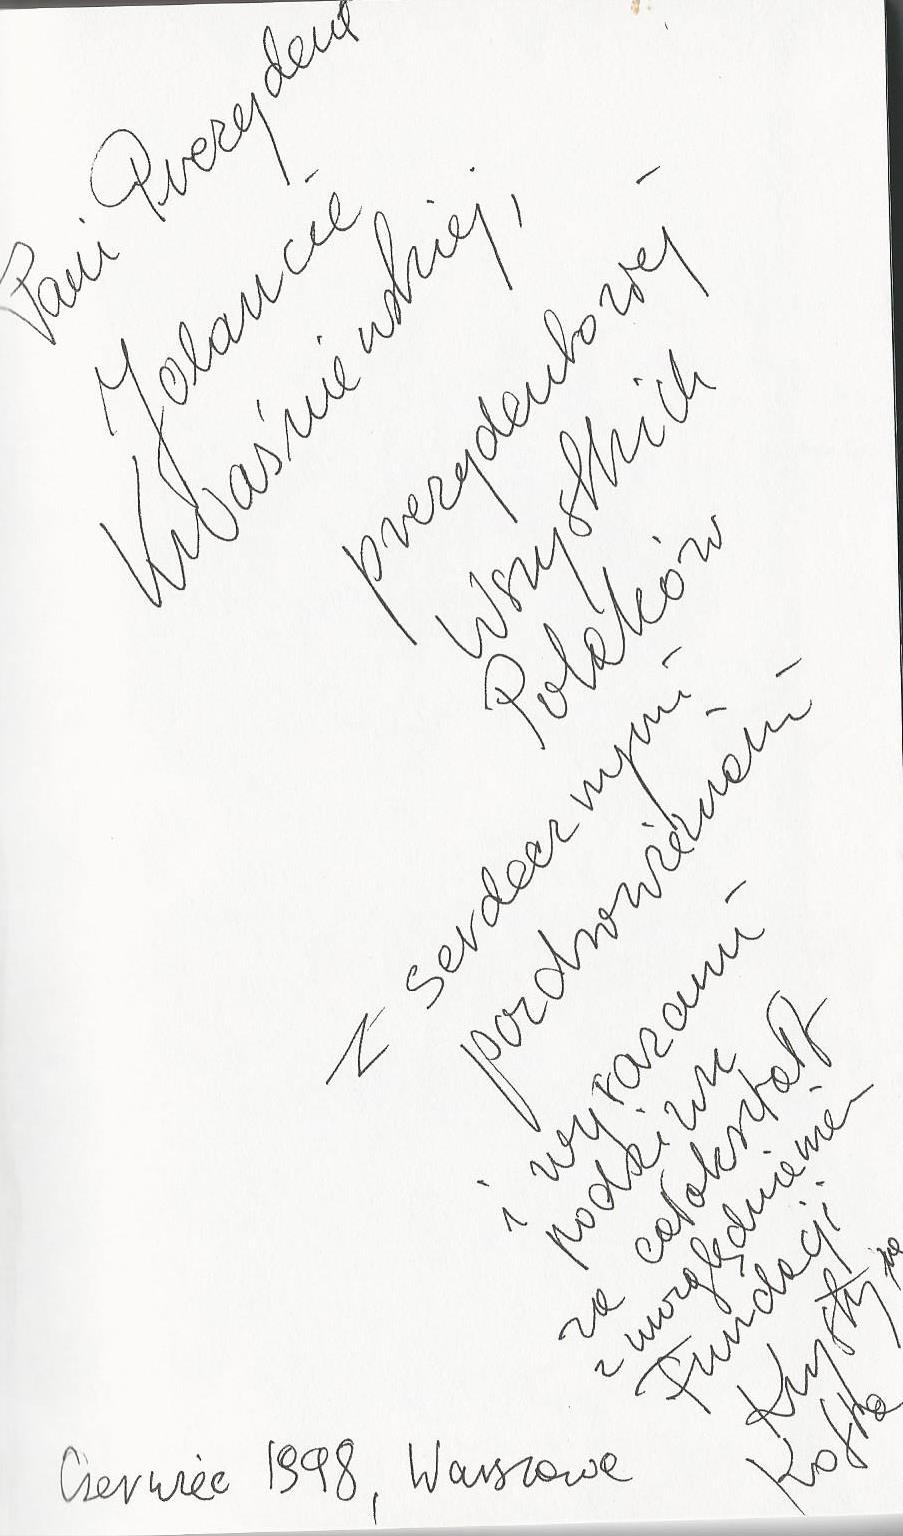 Pani Prezydent
Jolancie
Kwaśniewskiej,
prezydentowej
Wszystkich
Polaków
z serdecznymi
pozdrowieniami
i wyrazami
podziwu
za całokształt
z uwzględnieniem
Fundacji
Krystyna
Kofta
Czerwiec 1998, Warszawa